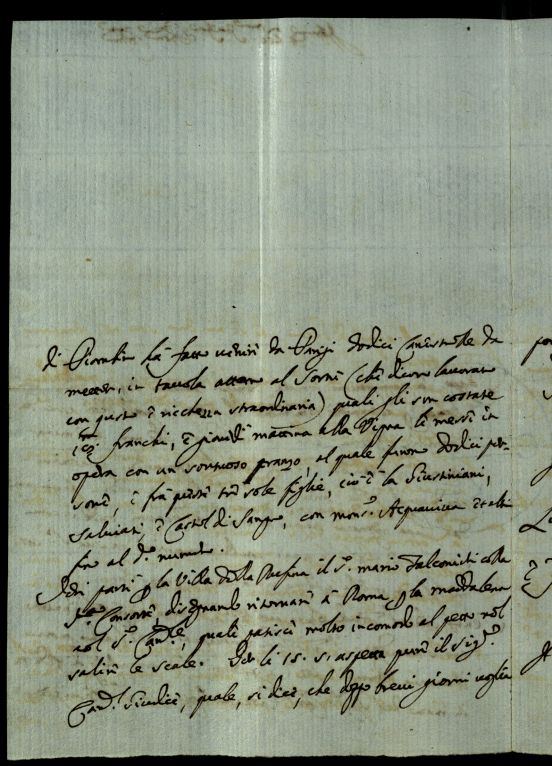 di Piombin hà fatto venire da Parigi dodici Canestrelle da
metter, in tavola attorno al Sortù (che dicon lavorate
con gusto è ricchezza straordinaria) quali gli son costate
franchi, è giovedì mattina alla Vigna le messe in
opera con un sontuoso pranzo, al quale furono dodici per-
sone, è frà queste trè sole figlie, cioè è la Giustiniani,
Salviati, è Castel di Sangro, con mons.r Acquaviva et altri
fino al d.o numero.
Jeri partì p la Villa della Rufina il S.r mario Falconieri colla
Consorte disegnando ritornare à Roma p la maddalena
col S. Card.le, quale patisce molto incomodo al petto nel
salire le scale. li 15. s'aspetta pure il Sig.r
Card.l Giudice, quale, si dice, che doppo brevi giorni voglia